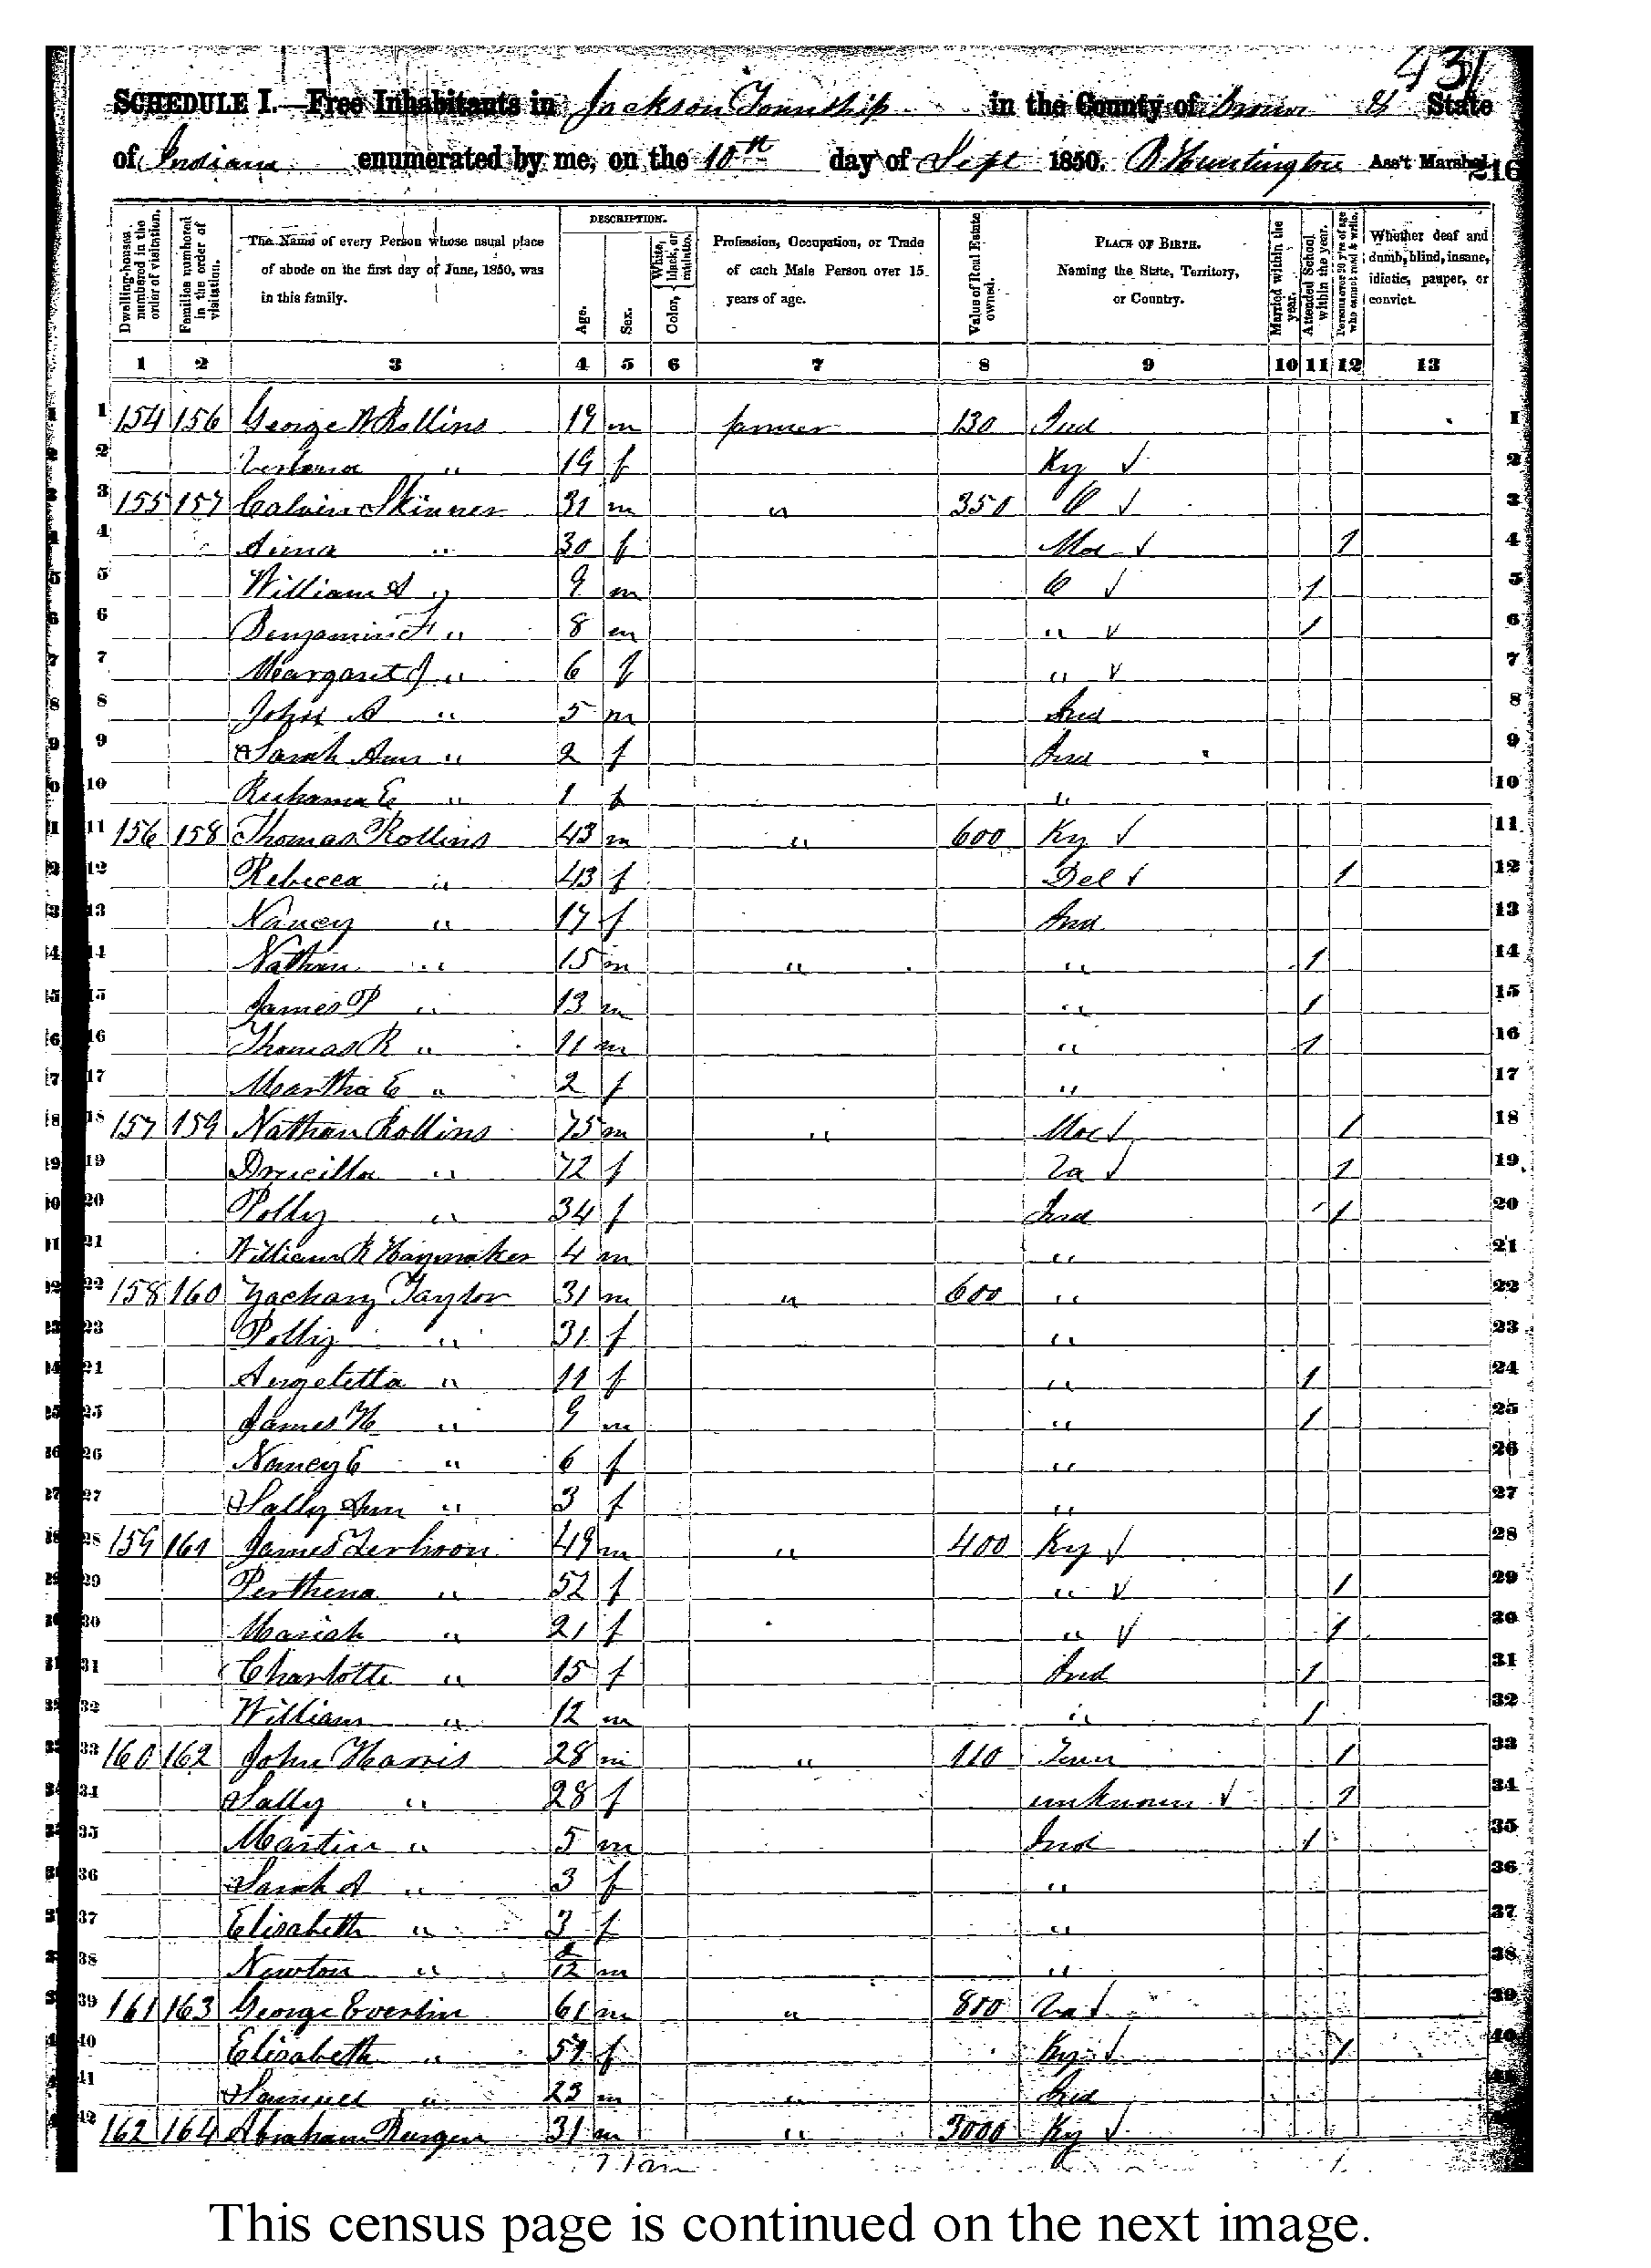 431
SCHEDULE I.—Free Inhabitants in Jackson Township in the County of Brown State
of Indiana enumerated by me, on the 10th day of Sept 1850. Huntington Ass't Marshal
216
Dwelling-houses numbered in the order of visitation.
Families numbered in the order of visitation.
The Name of every Person whose usual place of abode on the first day of June, 1850, was in this family.
DESCRIPTION.
Age.
Sex.
Color, White, black, or mulatto.
Profession, Occupation, or Trade of each Male Person over 15 years of age.
Value of Real Estate owned.
PLACE OF BIRTH. Naming the State, Territory, or Country.
Married within the year.
Attended School within the year.
Persons over 20 y'rs of age who cannot read & write.
Whether deaf and dumb, blind, insane, idiotic, pauper, or convict.
1 2 3 4 5 6 7 8 9 10 11 12 13
1 154 156 George W Rollins 19 m farmer 130 Ind 1
2 " 19 f Ky √ 2
3 155 157 Calvin Skinner 31 m " 350 O √ 3
4 Anna " 30 f √ 1 4
5 William A " 9 m O √ 1 5
6 Benjamin F " 8 m " √ 1 6
7 Margaret J " 6 f " √ 7
8 John A " 5 m Ind 8
9 Sarah Ann " 2 f Ind 9
10 E " 1 f " 10
11 156 158 Thomas Rollins 43 m " 600 Ky √ 11
12 Rebecca " 43 f Del √ 1 12
13 Nancy " 17 f Ind 13
14 Nathan " 15 m " " 1 14
15 James P " 13 m " 1 15
16 Thomas R " 11 m " 1 16
17 Martha E " 2 f " 17
18 157 159 Nathan Rollins 75 m " √ 1 18
19 Drucilla " 72 f Va √ 1 19
20 Polly " 34 f Ind 1 20
21 William R Haymaker 4 m " 21
22 158 160 Zachary Taylor 31 m " 600 " 22
23 Polly " 31 f " 23
24 Angeletta " 11 f " 1 24
25 James H " 9 m " 1 25
26 Nancy E " 6 f " 26
27 Sally Ann " 3 f " 27
28 159 161 James Terhoon 49 m " 400 Ky √ 28
29 Perthena " 52 f " √ 1 29
30 Mariah " 21 f " √ 1 30
31 Charlotte " 15 f Ind 1 31
32 William " 12 m " 1 32
33 160 162 John Harris 28 m " 110 Tenn 1 33
34 Sally " 28 f unknown √ 1 34
35 Martin " 5 m Ind 1 35
36 Sarah A " 3 f " 36
37 Elisabeth " 3 f " 37
38 Newton " 2/12 m " 38
39 161 163 George 61 m " 800 Va √ 39
40 Elisabeth " 57 f Ky √ 1 40
41 Samuel " 23 m " Ind 41
42 162 164 Abraham 31 m " 3000 Ky √
This census page is continued on the next image.